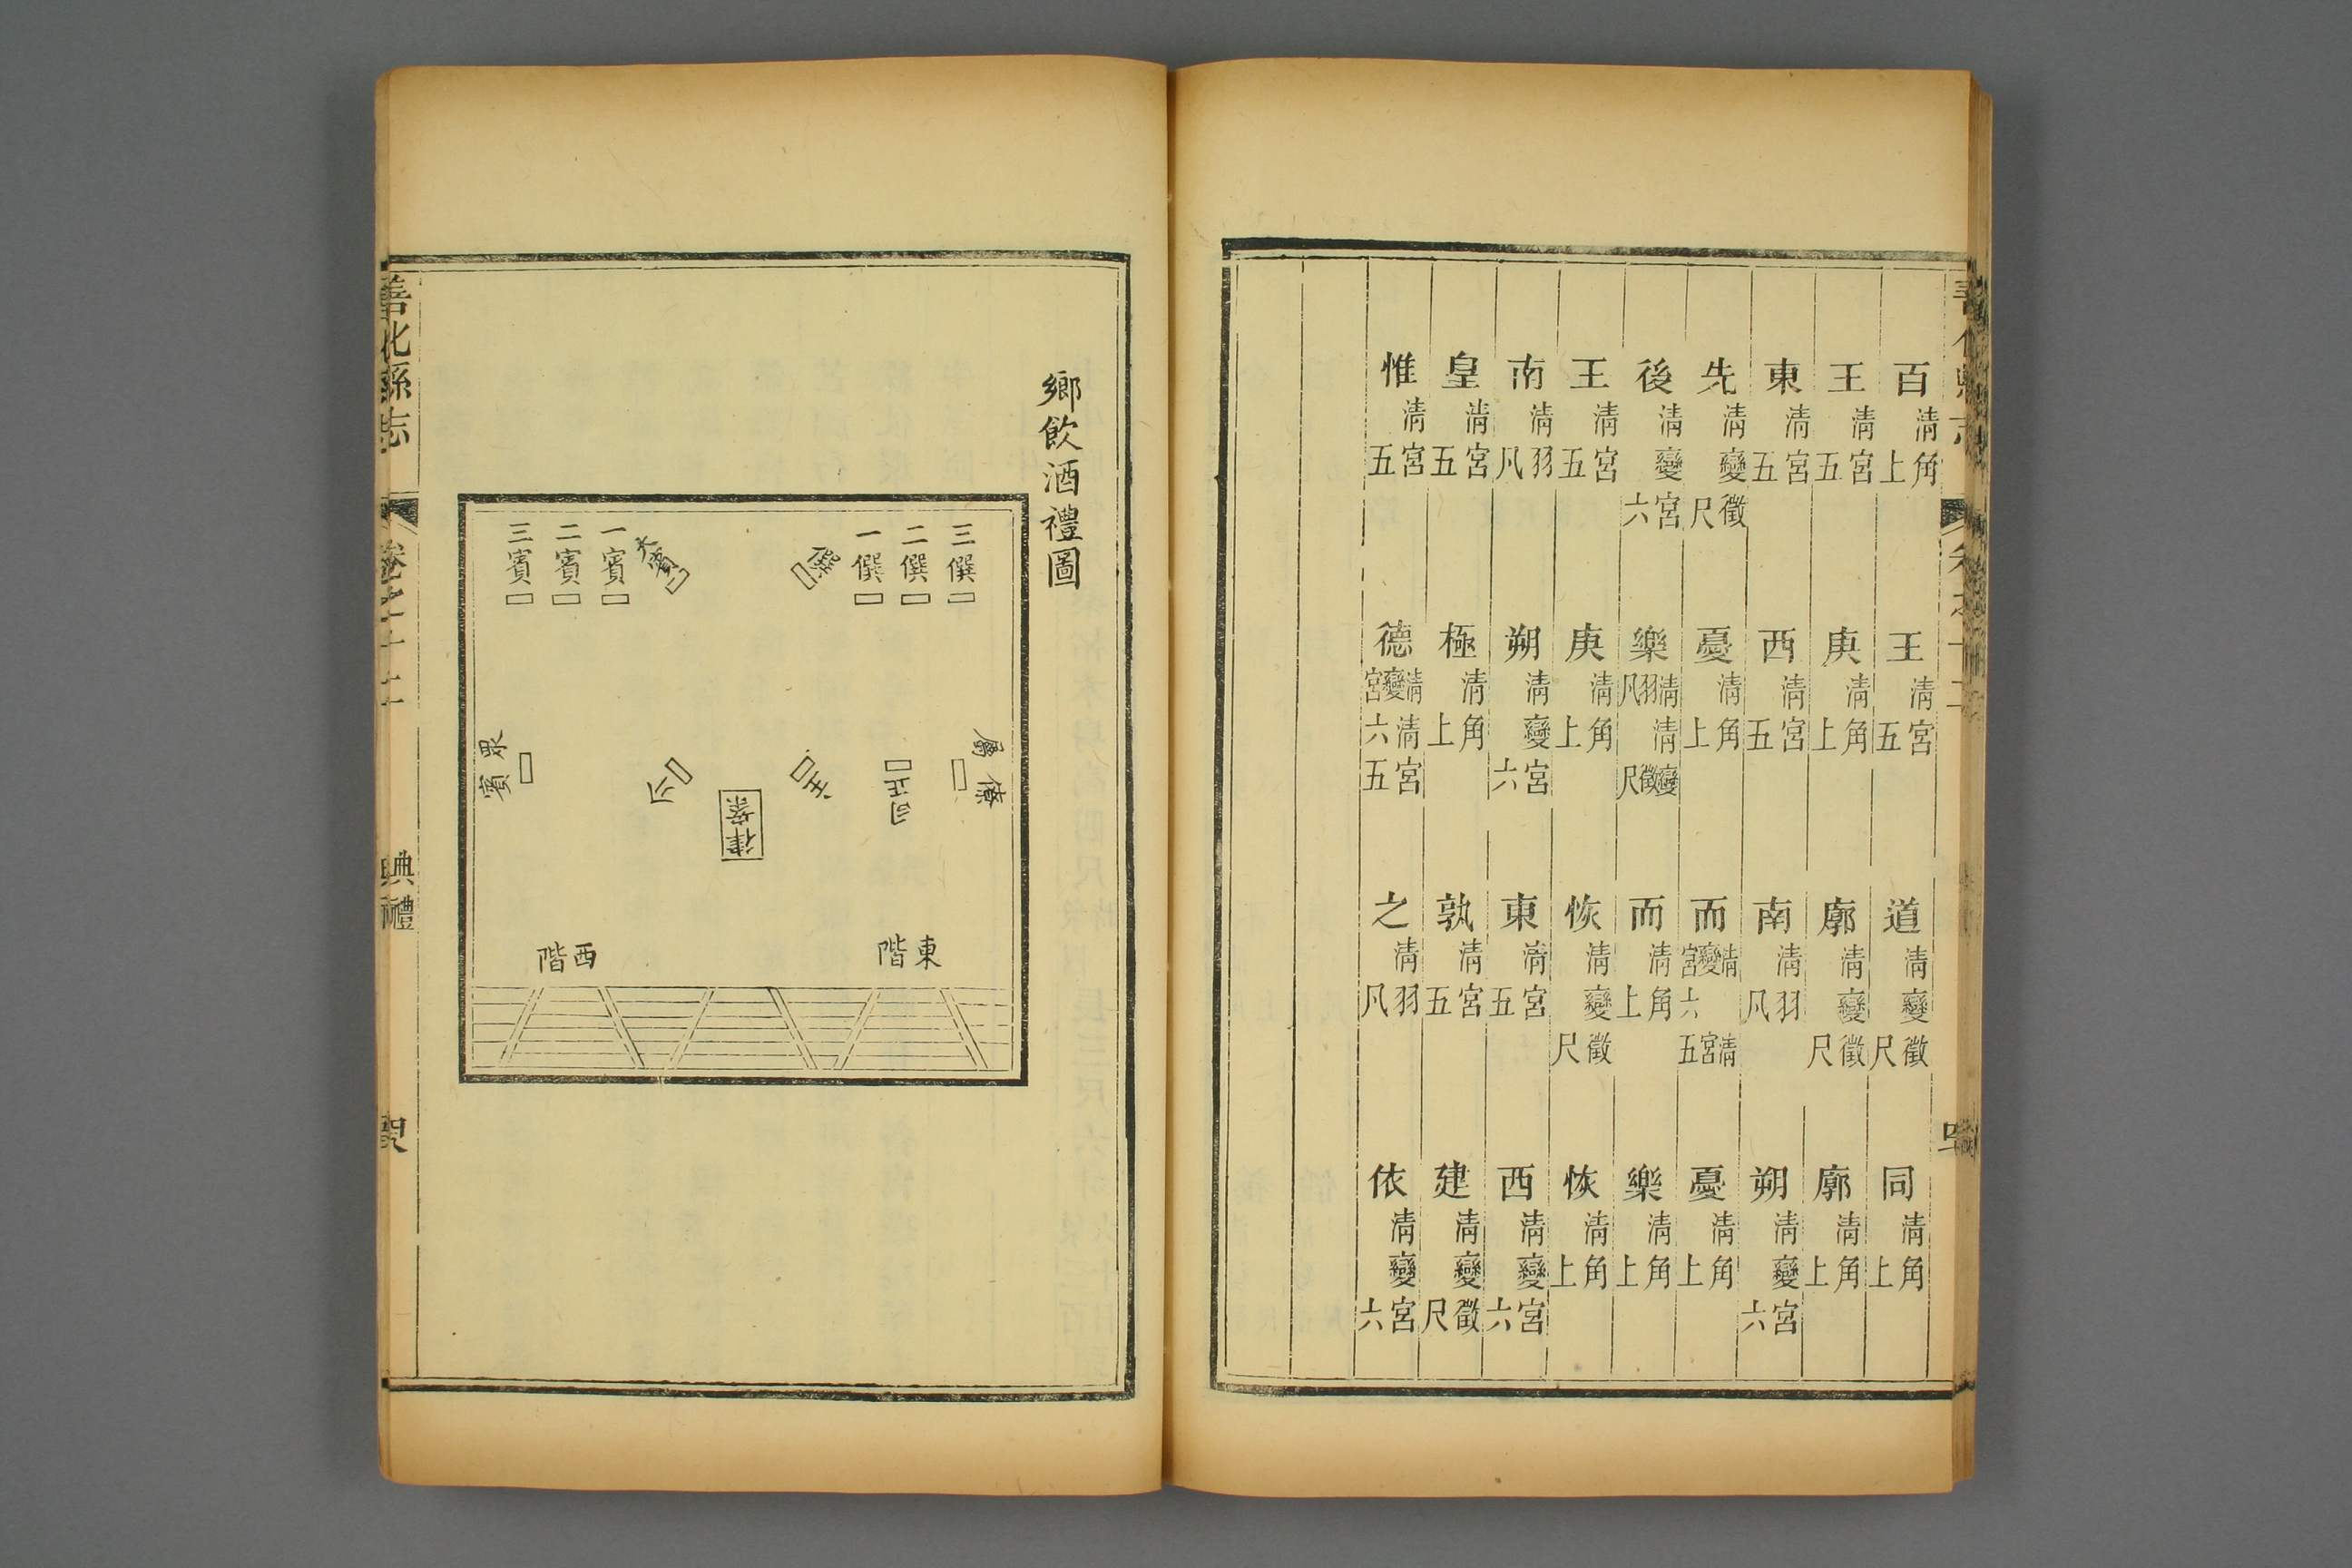 百清角上 王清宮五 道清變徵尺 同清角上
王清宮五 庚清角上 廓清變徵尺 廓清角上
東清宮五 西清宮五 南清羽凡 朔清變宮六
先清變徵尺 憂清角上 而清變宮六清宮五 憂清角上
後清變宮六 樂清羽凡清變徵尺 而清角上 樂清角上
王清宮五 庚清角上 恢清變徵尺 恢清角上
南清羽凡 朔清變宮六 東清宮五 西清變宮六
皇清宮五 極清角上 孰清宮五 建清變徵尺
惟清宮五 德清變宮六清宮五 之清羽凡 依清變宮六
鄉飲酒禮圖
三僎
二僎
一僎
僎
大賓
一賓
二賓
三賓
屬僚
司正
主
律案
介
眾賓
東階
西階
善化縣志
卷之十二
典禮